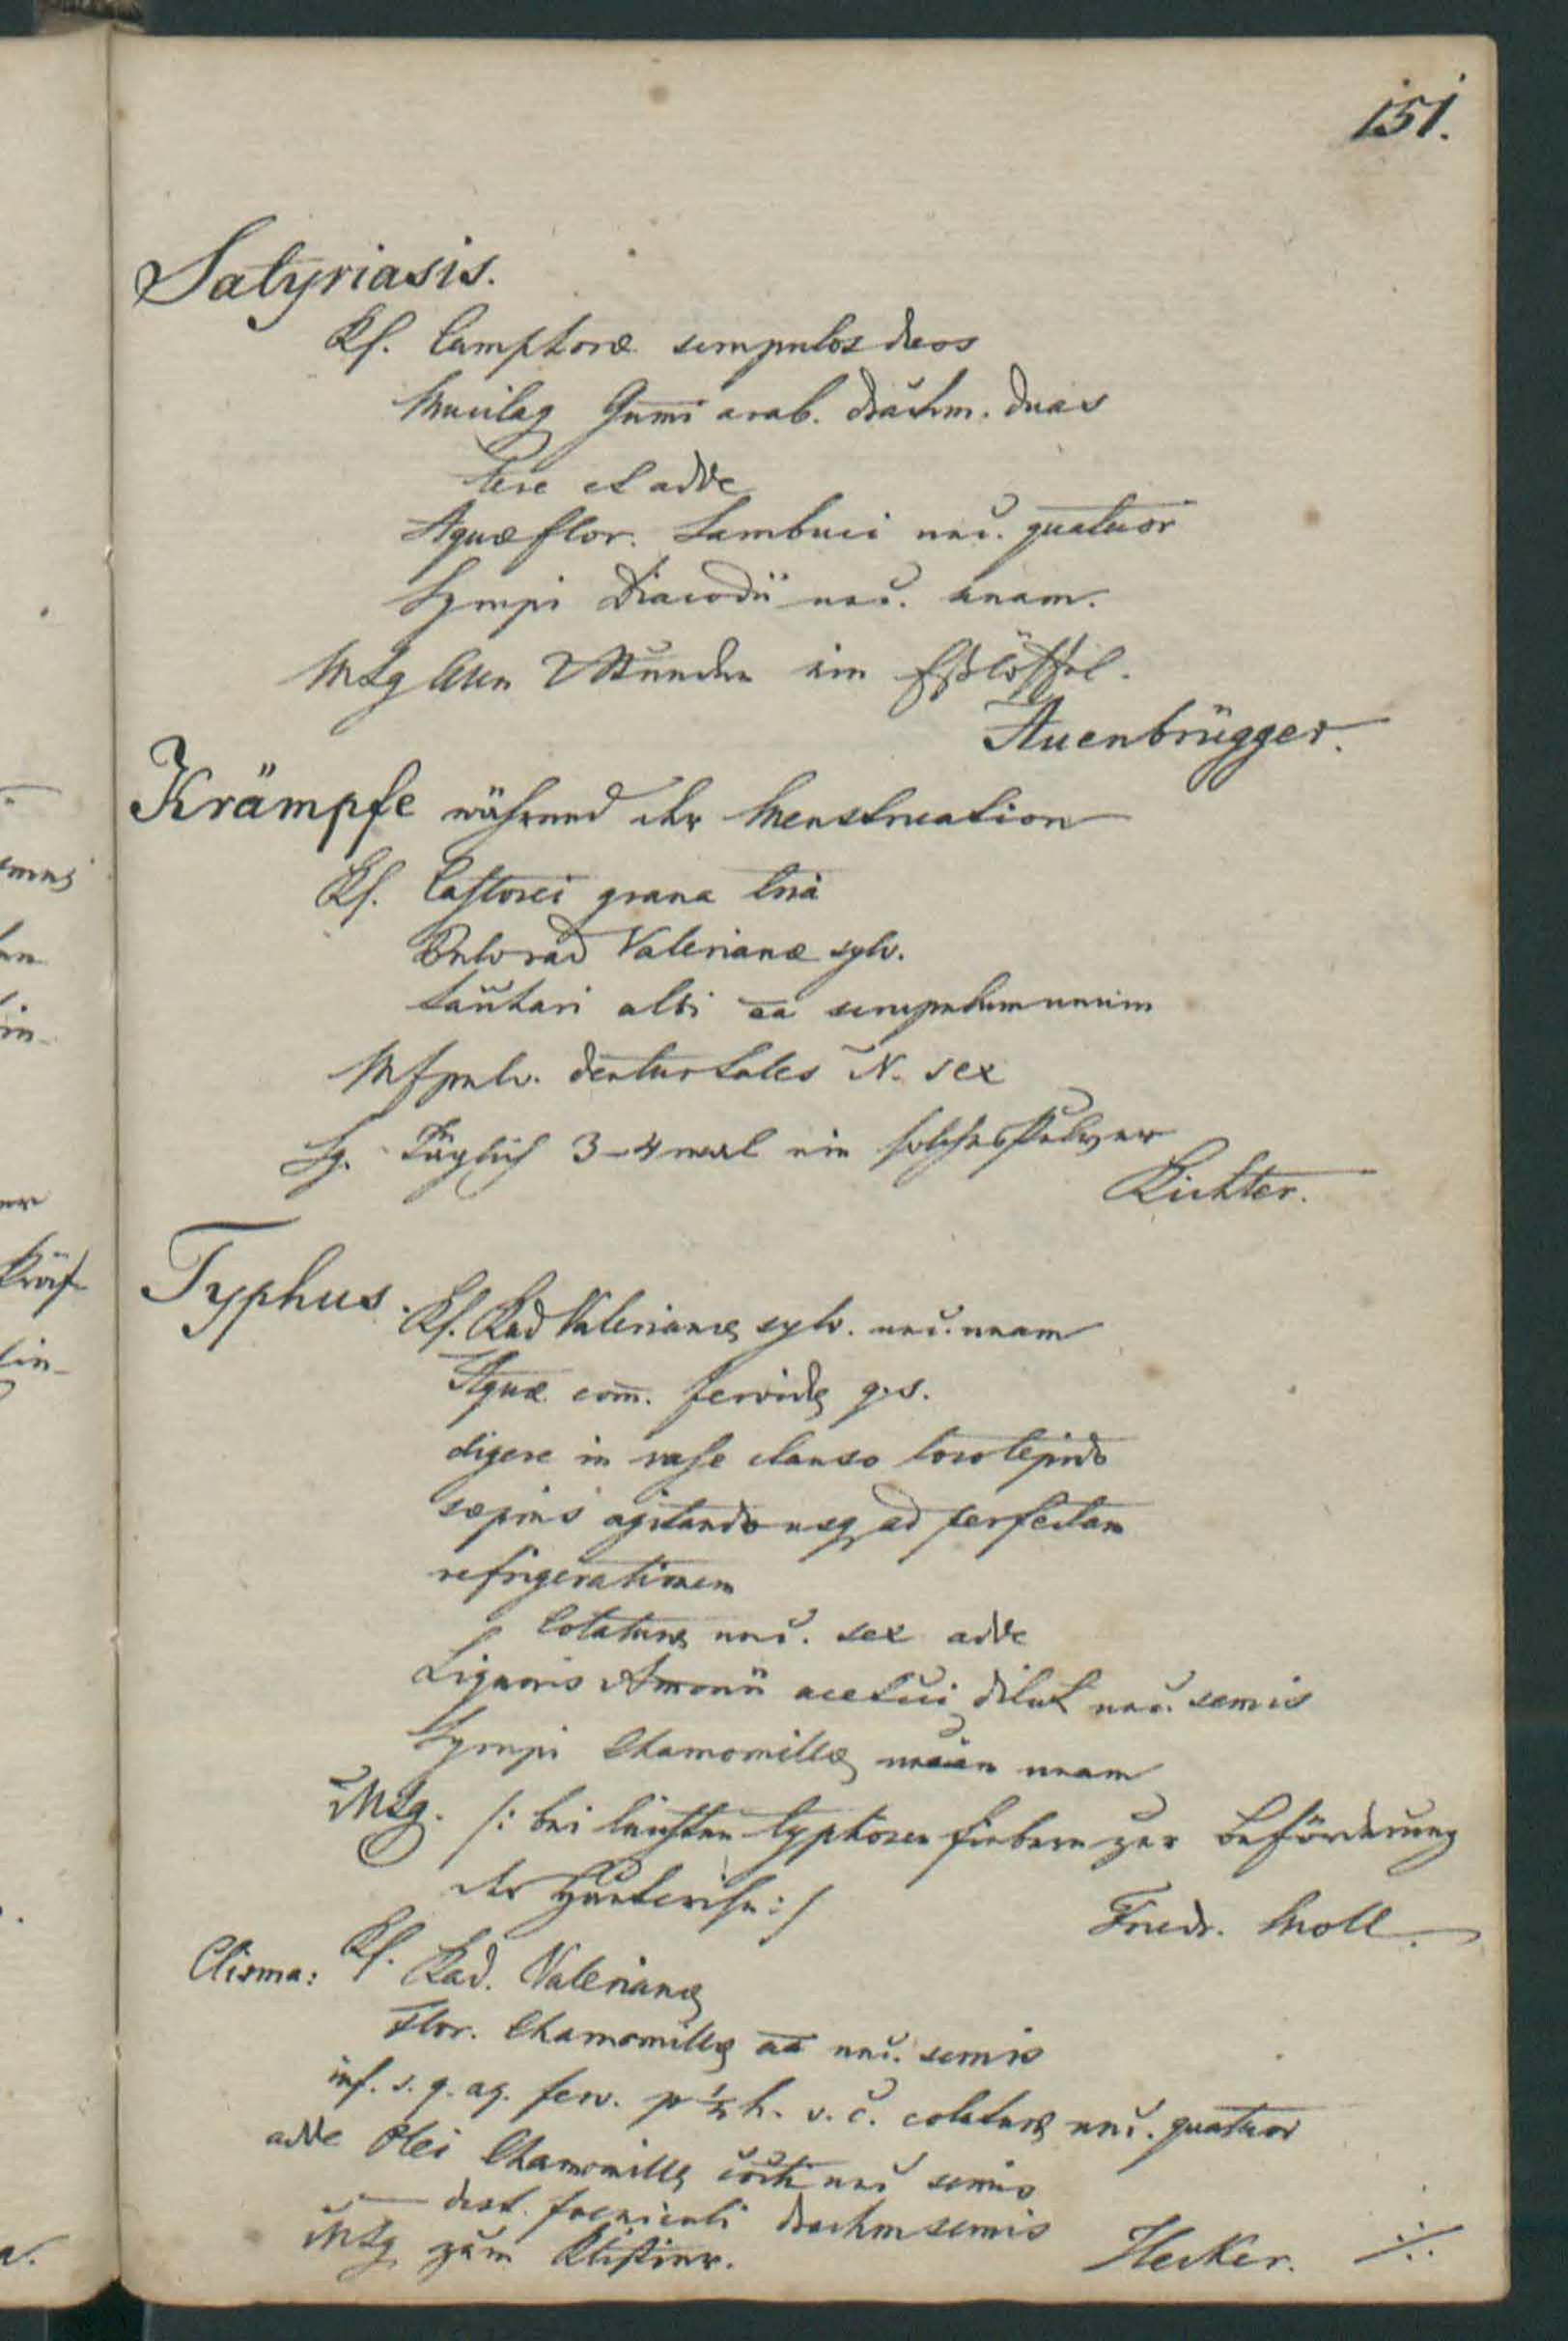 151.
Satyriasis.
Rf. Camphoræ scrupulos duos
Mucilag Gum̄i arab. drachm. duas
tere et adde
Aquæ flor. Sambuci unc. quatuor
Syrupi Diacodii unc. unam.
MSg Allen 2 Stunden ein Eßlöffel.
Auenbrügger.
Krämpfe während der Menstruation
Rf. Castorei grana tria
Pulv rad Valerianæ sylv.
Sacchari albi aa scrupulum unum
Mfpulv. dentur tales N. sex
Sg. Täglich 3-4 mal ein solches Pulver
Richter.
Typhus. Rf. Rad Valerianæ sylv. unc. unam
Aquæ com̄. fervidæ q.s.
digere in vase clauso loco tepido
sæpius agitando usq ad perfectam
refrigerationem
Colaturæ unc. sex adde
Liquoris Am̄onii acetici dilut unc. semis
Syrupi Chamomillæ unciam unam
MSg. /: bei leichten typhosen Fiebern zur Beförderung
der Hautkrise :/
Friedr. Moll.
Clisma: Rf. Rad. Valerianæ
Flor. Chamomillæ aa unc. semis
inf. s. q. aq. ferv. p ½ h. v. c. colaturæ unc. quatuor
adde Olei Chamomillæ cocti unc semis
— dest. foeniculi drachm semis
MSg zum Klistier.
Hecker. ·/.